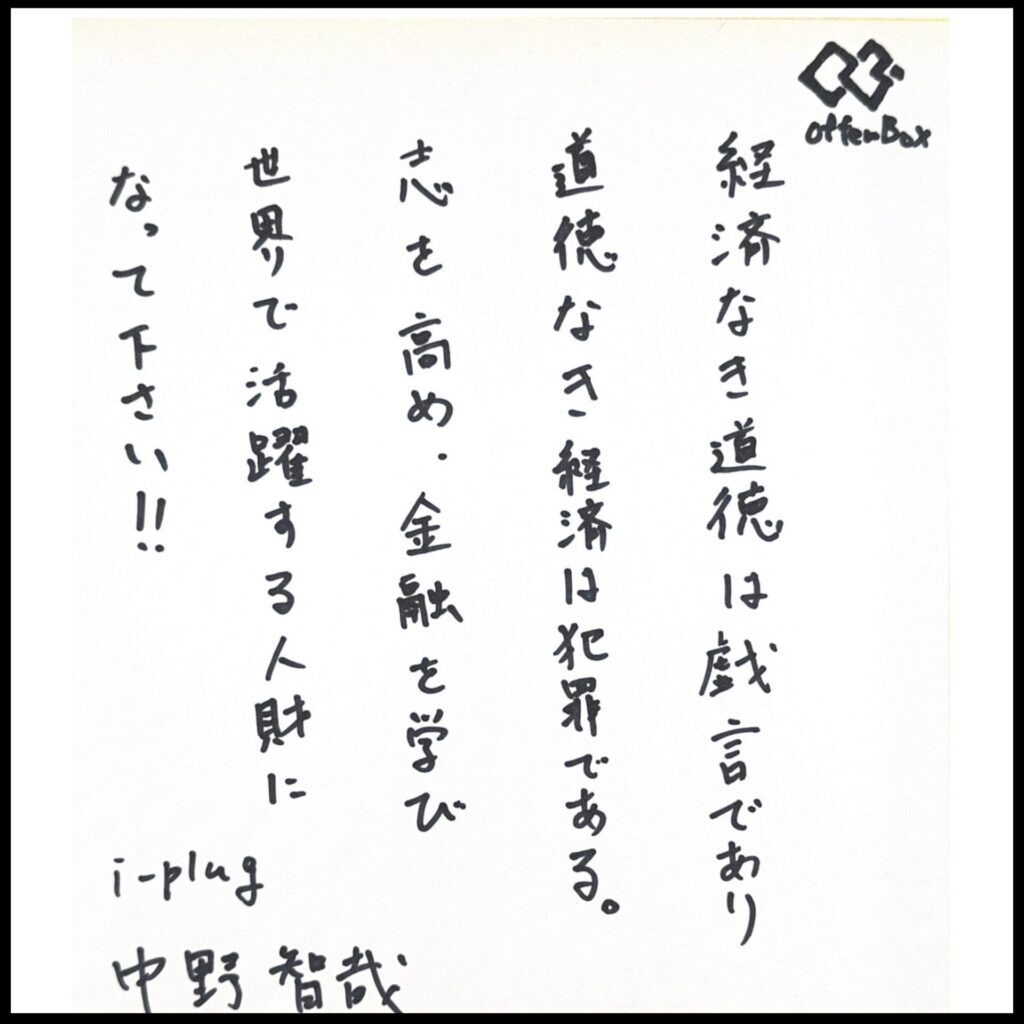 offerBox
経済なき道徳は戯言であり
道徳なき経済は犯罪である。
志を高め、金融を学び
世界で活躍する人財に
なって下さい!!
i-plug
中野 智哉